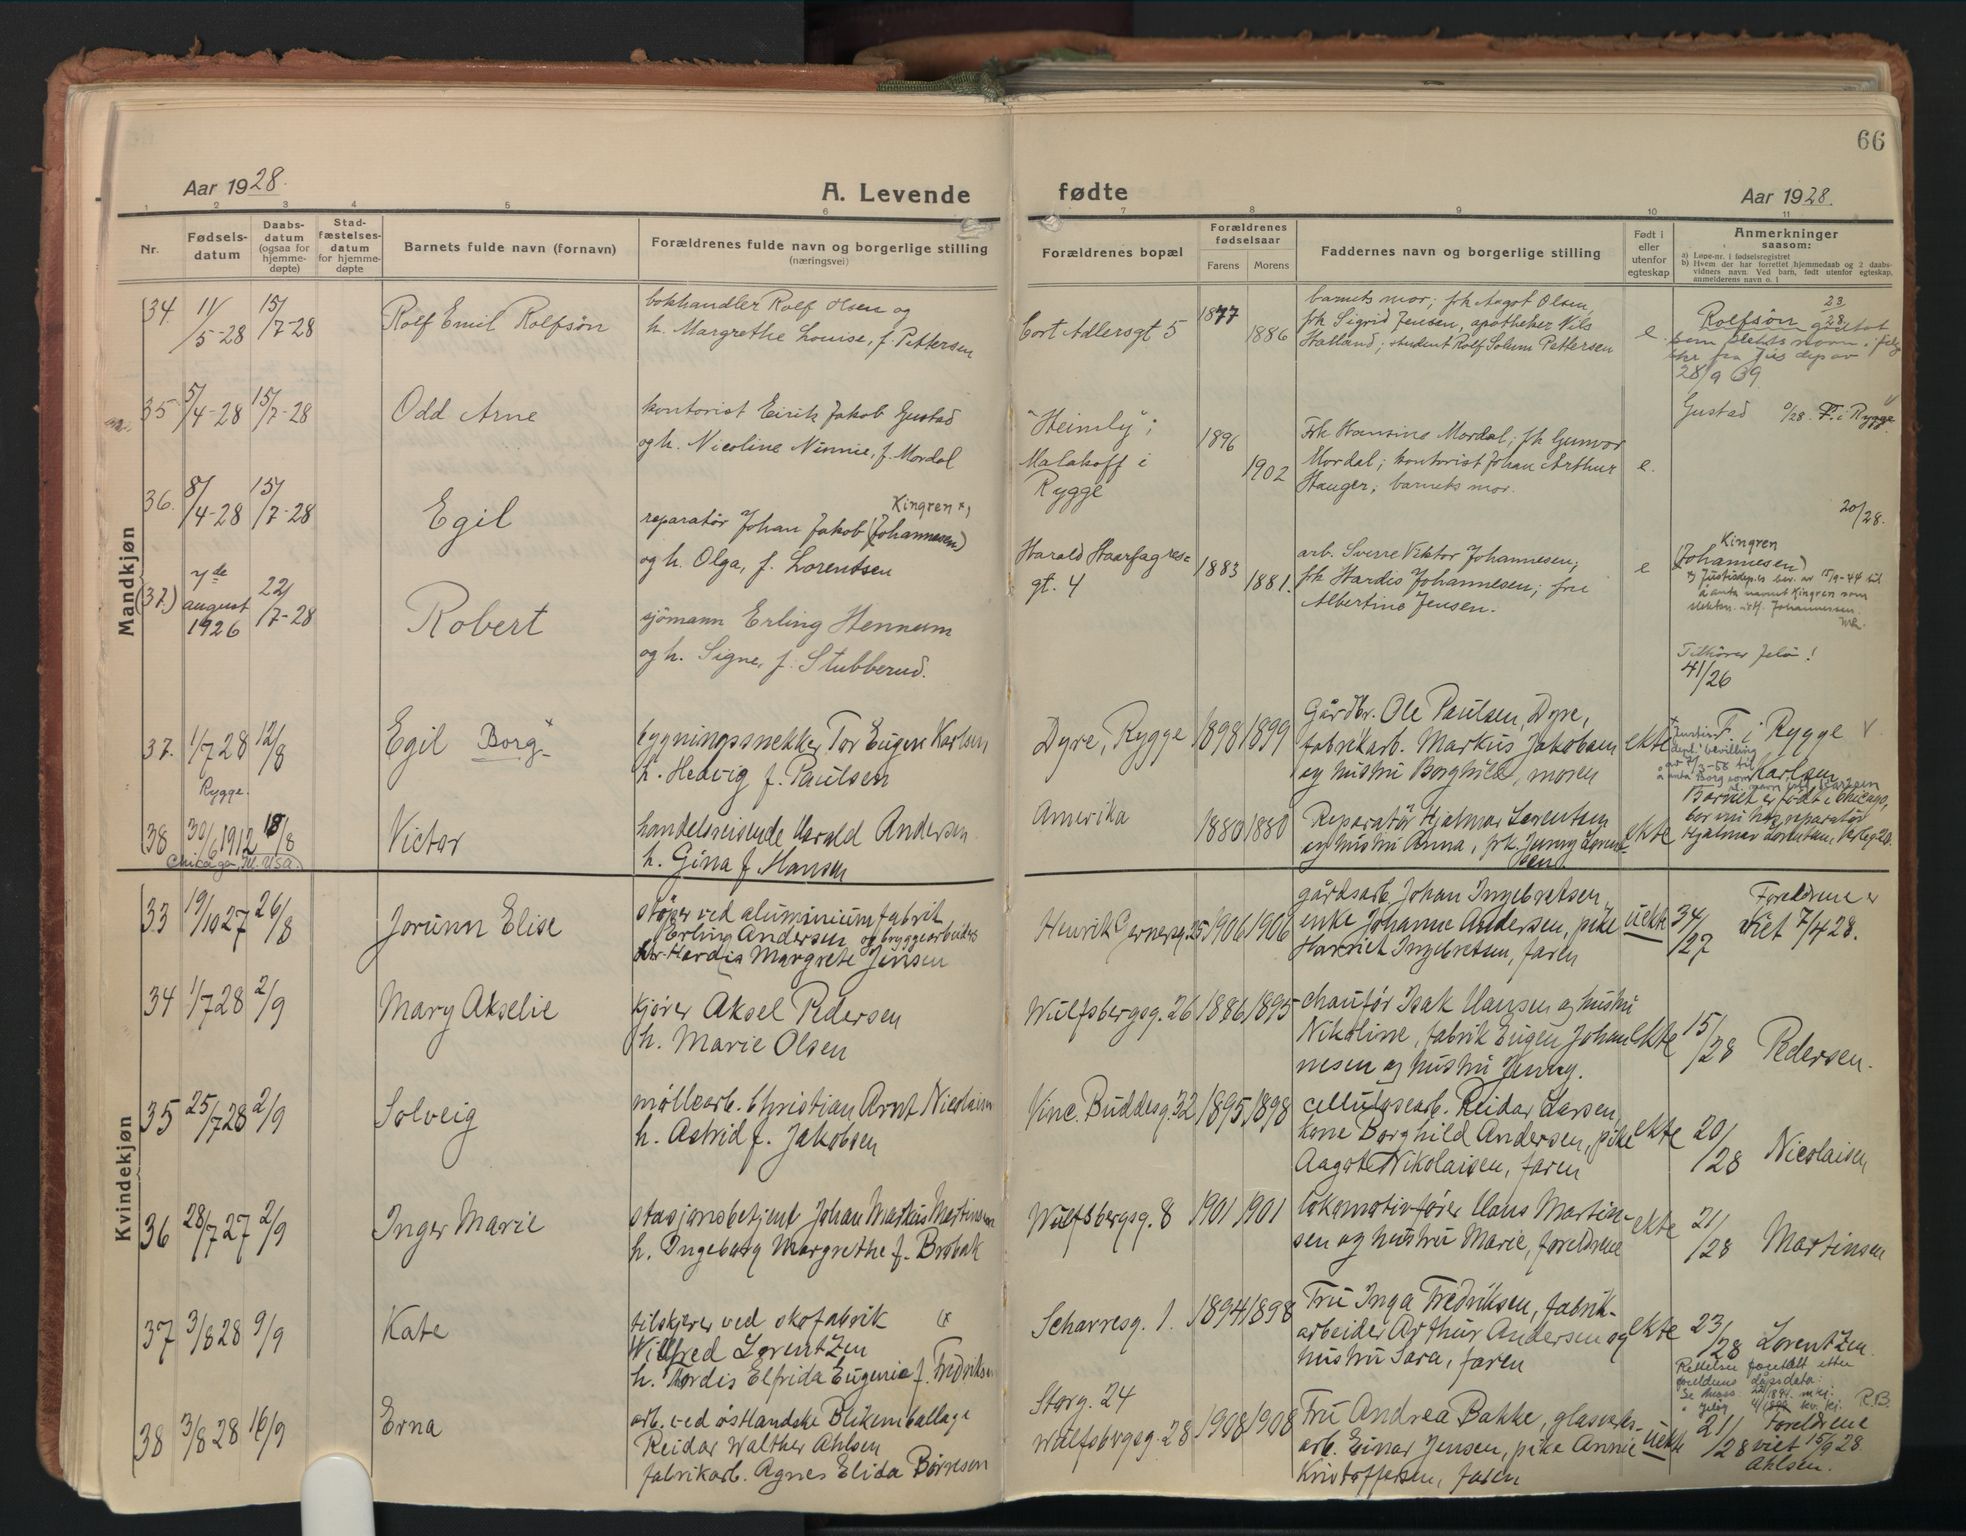 66
Aar 1928.
A. Levende
fødte
Aar 1928.
1 2 3 4 5 6 7 8 9 10 11
Nr.
Fødsels-
datum
Daabs-
datum
(ogsaa for
hjemme-
døpte)
Stad-
fæstelses-
datum
for hjemme-
døpte
Barnets fulde navn (fornavn)
Forældrenes fulde navn og borgerlige stilling
(næringsvei)
Forældrenes bopæl
Forældrenes
fødselsaar
Farens Morens
Faddernes navn og borgerlige stilling
Født i
eller
utenfor
egteskap
Anmerkninger
saasom:
a) Løpe-nr. i fødselsregistret
b) Hvem der har forrettet hjemmedaab og 2 daabs-
vidners navn. Ved barn, født utenfor egteskap,
anmelderens navn o. l
Mandkjøn
34. 11/5-28 15/7-28 Rolf Emil Rolfsøn
bokhandler Rolf Olsen og
h. Margrethe Louise, f. Pettersen
Cort Adlersgt 5 1877 1886
barnets mor; frk Aagot Olsen,
frk Sigrid Jensen, apotheker Nils
Hatland; student Rolf Solum Pettersen
e.
23/28
Rolfsøn godtat
som slektsnavn i følge
skr fra Jus dep av
28/9 69.
35. 5/4-28 15/7-28 Odd Arne
kontorist Eirik Jakob Gustad
og h. Nicoline Ninnie, f. Mordal
"Heimly";
Malakoff i
Rygge
1896 1902
Frk Hansine Mordal; frk Gunvor
Mordal; kontorist Johan Arthur
Hauger; barnets mor.
e.
Gustad 0/28. F. i Rygge
36. 8/4-28 15/7-28 Egil
Kingren x)
reparatør Johan Jakob (Johannesen)
og h. Olga, f. Lorentsen
Harald Haarfagres=
gt. 4
1883 1881.
arb. Sverre Viktor Johannesen;
frk Hardis Johannesen; fru
Albertine Jensen.
e
20/28.
Kingren
(Johannesen)
x) Justisdep.es bev. av 15/9-44 til
å anta namet Kingren som
slektsn. istf. Johannessen.
(37.) 7de august 1926 22/7-28 Robert
sjømann Erling Hennum
og h. Signe, f. Stubberud.
Tilhører Jeløi!
41/26
37. 1/7 28 12/8 Egil Borg x
Rygge.
bygningssnekker Tor Eugen Karlsen
h. Hedvig f. Paulsen
Dyre, Rygge 1898 1899
Gårdbr. Ole Paulsen, Dyre,
fabrikarb. Markus Jakobsen
og hustru Borghild, moren
ekte
F. i Rygge
Karlsen
38 30/6 1912 18/8 Victor
Chicago, Ill. USA.
handelsreisende Harald Andersen
h. Gina f Hansen
Amerika 1880 1880
Reparatør Hjalmar Lorentsen
og hustru Anna, frk. Jenny Lorent-
sen
ekte
Barnet er født i Chicago,
bor nu hos reparatør
Hjalmar Lorentsen, Verleg 20.
Kvindekjøn
33 19/10 27 26/8 Jorunn Elise
støper ved aluminiumfabrik
Erling Andersen og bryggearbeiders
Hardis Margrete Jensen
Henrik Gernersg. 25 1906 1906
gårdsarb. Johan Ingebretsen,
enke Johanne Andersen, pike
Harriet Ingebretsen, faren
uekte
34/27
Foreldrene er
viet 7/4 28.
34 1/7 28 2/9 Mary Akselie
kjører Aksel Pedersen
h. Marie Olsen
Wulfsbergsg. 26 1886 1895
chaufør Isak Hansen og hustru
Nikoline, fabrik Eugen Johan
nesen og hustru Jenny.
ekte
15/28 Pedersen.
35 25/7 28 2/9 Solveig
møllearb. Christian Arnt Nicolaisen
h. Astrid f. Jakobsen
Vinc. Buddesg. 32 1895 1898
cellulosearb. Reidar Larsen,
kone Borghild Andersen, pike
Aagot Nikolaisen, faren
ekte
20/28 Nicolaisen
36 28/7 27 2/9 Inger Marie
stasjonsbetjent Johan Markus Martinsen
h. Ingeborg Margrethe f. Brobak
Wulfsbergsg. 8 1901 1901
lokomotivfører Hans Martin-
sen og hustru Marie, foreldrene
ekte
21/28 Martinsen
37 3/8 28 9/9 Kate
tilskjærer ved skofabrik
Wilfred Lorentzen
h. Hordis Elfrida Eugenie f. Fredriksen
Scharresg. 1. 1894 1898
Fru Inga Fredriksen, fabrik-
arbeider Arthur Andersen og
hustru Sara, faren
ekte
23/28 Lorentzen.
Rettelser foretatt etter
foreldrens dåpsdata:
R.B.
38 3/8 28 16/9 Erna
arb. ved østlandske Blikemballage
Reidar Walther Ahlsen
fabrikarb. Agnes Elida Børresen
Storg. 24
Wulfsbergsg. 28 1908 1908
Fru Andrea Bakke, glasverks-
arb. Einar Jensen, pike Annie
Kristoffersen, faren
uekte
21/28
Foreldrene
viet 15/9 28.
Ahlsen.